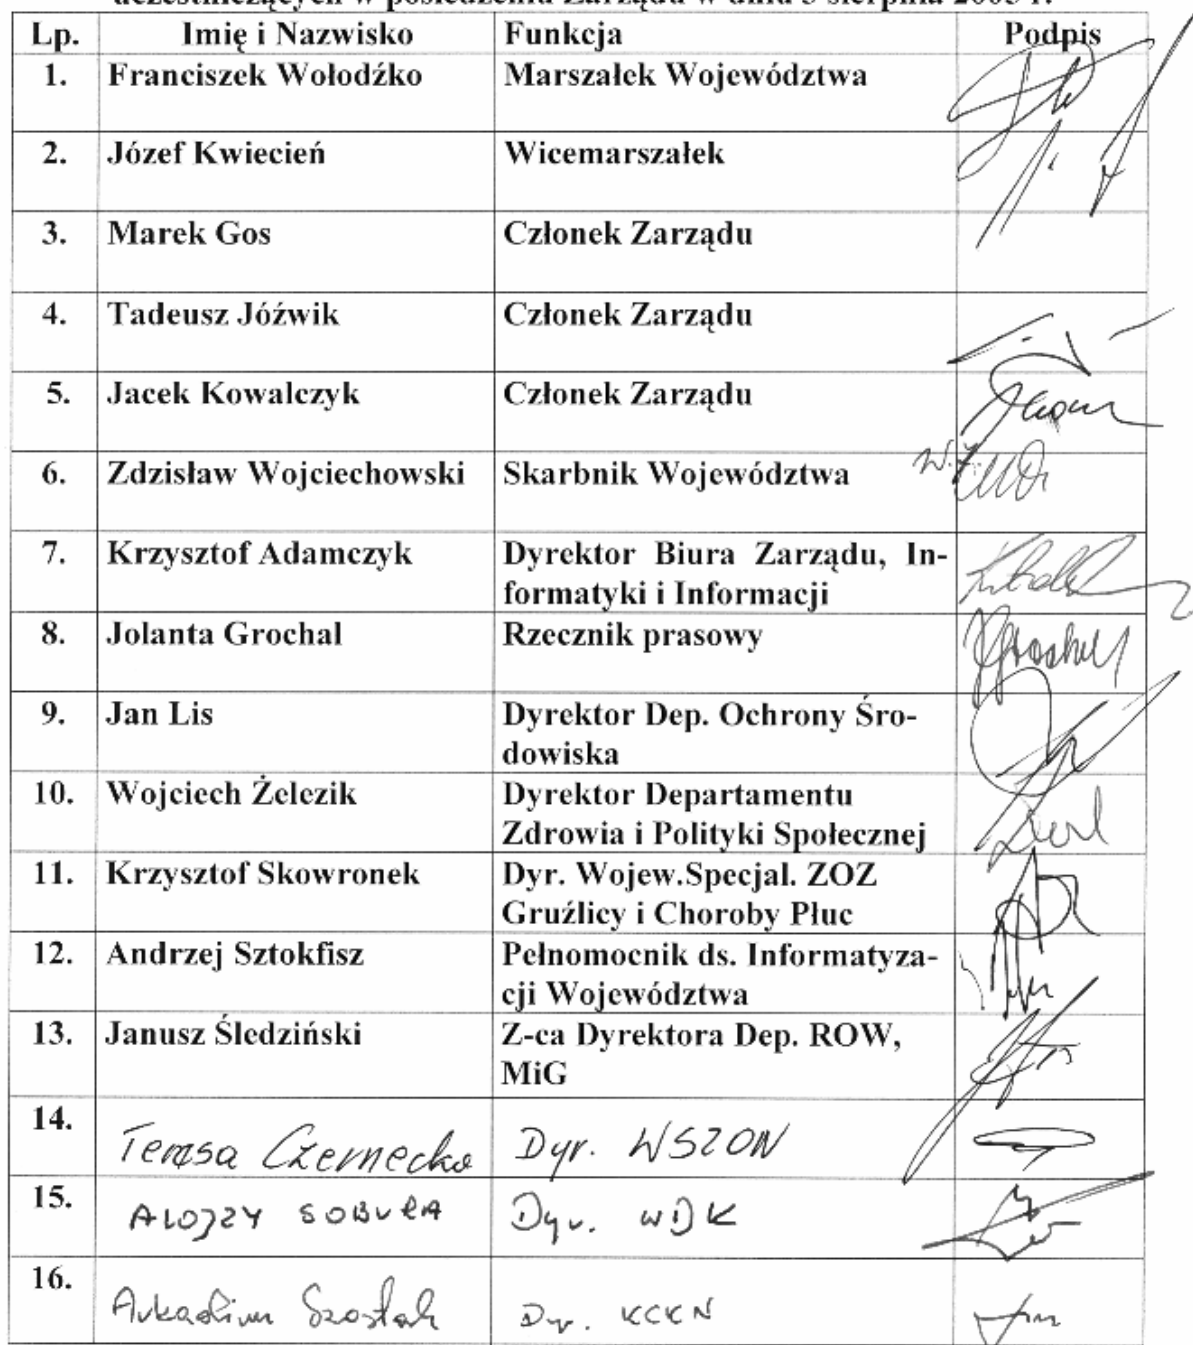 uczestniczących w posiedzeniu Zarządu w dniu 3 sierpnia 2005 r.
Lp. Imię i Nazwisko Funkcja Podpis
1. Franciszek Wołodźko Marszałek Województwa
2. Józef Kwiecień Wicemarszałek
3. Marek Gos Członek Zarządu
4. Tadeusz Jóźwik Członek Zarządu
5. Jacek Kowalczyk Członek Zarządu
6. Zdzisław Wojciechowski Skarbnik Województwa
7. Krzysztof Adamczyk Dyrektor Biura Zarządu, In-
formatyki i Informacji
8. Jolanta Grochal Rzecznik prasowy
9. Jan Lis Dyrektor Dep. Ochrony Śro-
dowiska
10. Wojciech Żelezik Dyrektor Departamentu
Zdrowia i Polityki Społecznej
11. Krzysztof Skowronek Dyr. Wojew.Specjal. ZOZ
Gruźlicy i Choroby Płuc
12. Andrzej Sztokfisz Pełnomocnik ds. Informatyza-
cji Województwa
13. Janusz Śledziński Z-ca Dyrektora Dep. ROW,
MiG
14. Teresa Czernecka Dyr. WSZON
15. ALOJZY SOBURA Dyr. WDK
16. Arkadiusz Szostak Dyr. KCKN